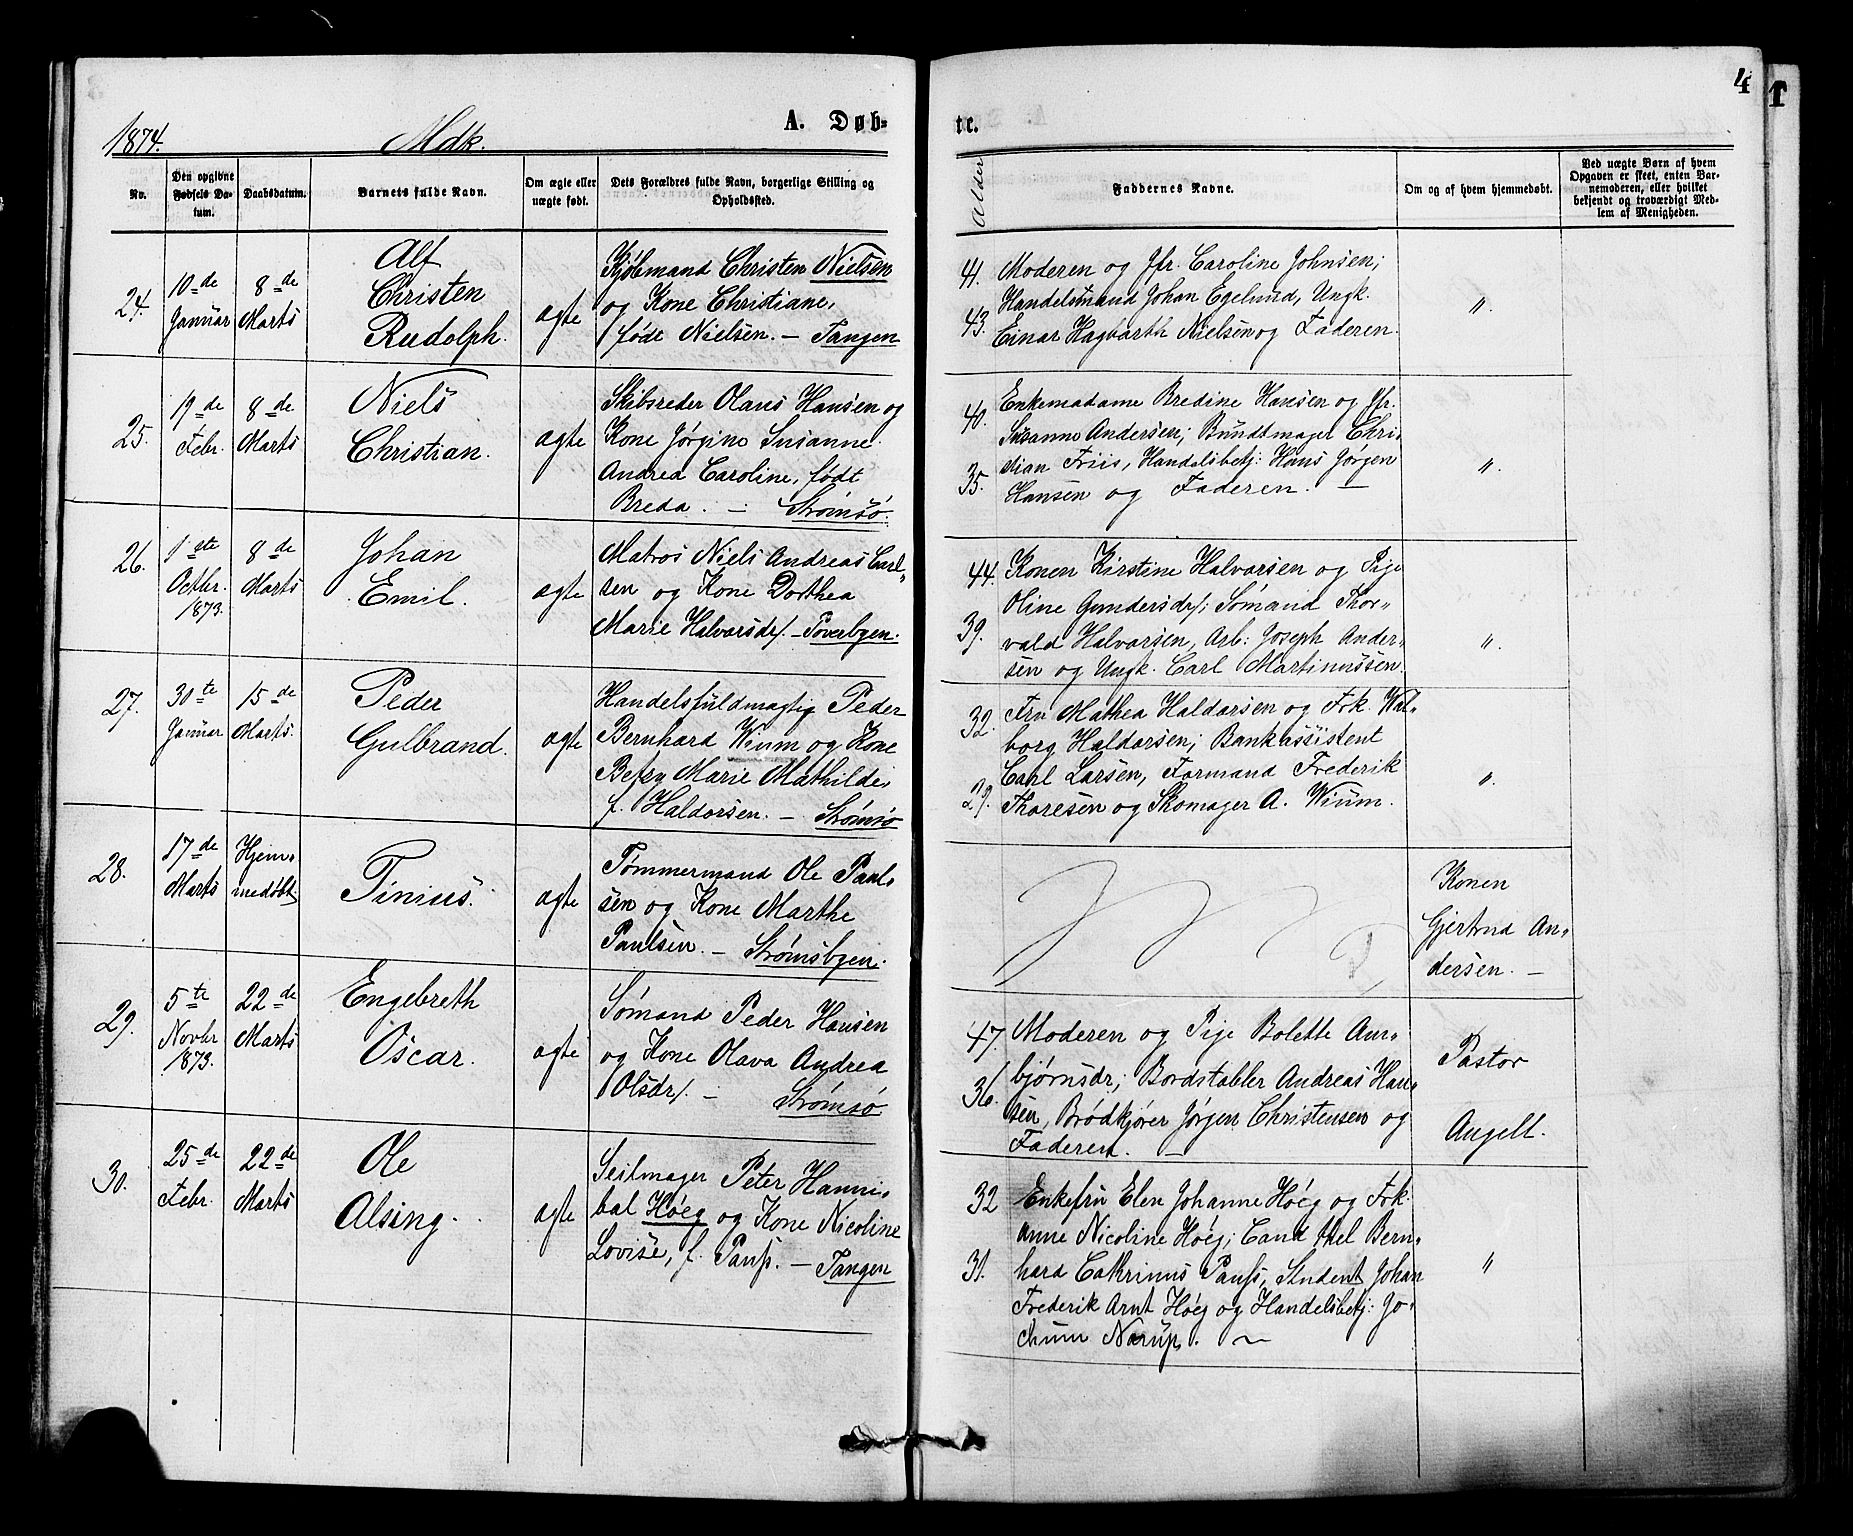 4
1
1874.
Mdk.
A. Døb-
te.
No.
Den opgivne Fødsels Da-
tum.
Daabsdatum.
Barnets fulde Navn.
Om ægte eller
uægte født.
Dets Forældres fulde Navn, borgerlige Stilling og
Opholdssted.
Alder
Faddernes Navne.
Om og af hvem hjemmedøbt.
Ved uægte Børn af hvem
Opgaven er skeet, enten Bar-
nemoderen, eller hvilket
bekjendt og troværdigt Med-
lem af Menigheden.
24.
10de
Januar
8de
Marts
Alf
Christen
Rudolph.
ægte
Kjøbmand Christen Nielsen
og Kone Christiane,
født Nielsen. — Tangen
41.
43.
Moderen og Jfr. Caroline Johnsen;
Handelsmand Johan Egelund, Ungk.
Einar Hagbarth Nielsen og Faderen.
"
25.
19de
Febr.
8de
Marts
Niels
Christian.
ægte
Skibsreder Olaus Hansen og
Kone Jørgine Susanne
Andrea Caroline, født
Breda. — Strømsø.
40.
35.
Enkemadame Bredine Hansen og Jfr.
Susanne Andersen; Bundtmager Chri-
stian Friis, Handelsbetj: Hans Jørgen
Hansen og Faderen. —
"
26.
1ste
Octbr.
1873.
8de
Marts
Johan
Emil.
ægte
Matros Niels Andreas Carl-
sen og Kone Dorthea
Marie Halvorsdr/. — Toverbyen.
44.
39.
Konen Kirstine Halvorsen og Pige
Oline Gundersdr/; Sømand Thor-
vald Halvorsen, Arb: Joseph Ander-
sen og Ungk. Carl Martinussen.
"
27.
30te
Januar
15de
Marts.
Peder
Gulbrand.
ægte
Handelsfuldmægtig Peder
Bernhard Wium og Kone
Betzy Marie Mathilde,
f. Haldorsen. — Strømsø
32.
29.
Fru Mathea Haldorsen og Frk. Wal-
borg Haldorsen; Bankassistent
Carl Larsen, Formand Frederik
Thoresen og Skomager A. Wium.
"
28.
17de
Marts
Hjem-
medøbt
Tinius.
ægte
Tømmermand Ole Paul-
sen og Kone Marthe
Paulsen. — Strømsbyen.
Konen
Gjertrud An-
dersen. —
29.
5te
Novbr
1873.
22de
Marts
Engebreth
Oscar.
ægte
Sømand Peder Hansen
og Kone Olava Andrea
Olsdr/. — Strømsø
47.
36.
Moderen og Pige Bolette Aan-
bjørnsdr; Bordstabler Andreas Han-
sen, Brødkjører Jørgen Christensen og
Faderen. —
Pastor
Angell.
30.
25de
Febr.
22de
Marts
Ole
Alsing.
ægte
Seilmager Peter Hanni-
bal Höeg og Kone Nicoline
Lovise, f. Pauss. — Tangen
32
31.
Enkefru Elen Johanne Höeg og Frk.
Anne Nicoline Höeg; Cand thel Bern-
hard Cathrinus Pauss, Student Johan
Frederik Arnt Höeg og Handelsbetj: Jo-
chum Nørup.
"